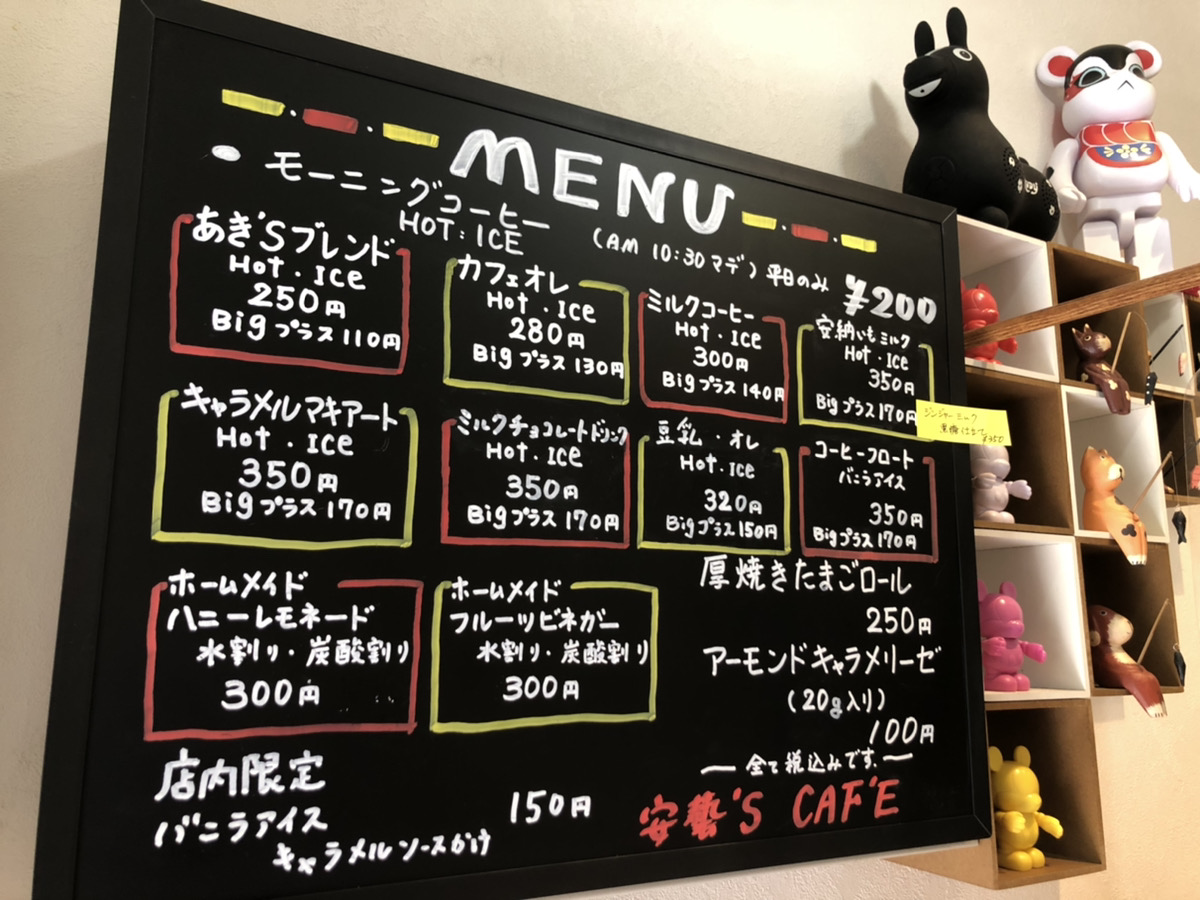 MENU
モーニングコーヒー
HOT:ICE
(AM 10:30マデ) 平日のみ ¥200
あき'Sブレンド
Hot・Ice
250円
Bigプラス110円
カフェオレ
Hot・Ice
280円
Bigプラス130円
ミルクコーヒー
Hot・Ice
300円
Bigプラス140円
安納いもミルク
Hot・Ice
350円
Bigプラス170円
ジンジャーミルク
¥350
キャラメルマキアート
Hot・Ice
350円
Bigプラス170円
ミルクチョコレートドリンク
Hot・Ice
350円
Bigプラス170円
豆乳・オレ
Hot・Ice
320円
Bigプラス150円
コーヒーフロート
バニラアイス
350円
Bigプラス170円
ホームメイド
ハニーレモネード
水割り・炭酸割り
300円
ホームメイド
フルーツビネガー
水割り・炭酸割り
300円
厚焼きたまごロール
250円
アーモンドキャラメリーゼ
(20g入り)
100円
全て税込みです.
店内限定
バニラアイス
キャラメルソースがけ
150円
安藝'S CAF'E